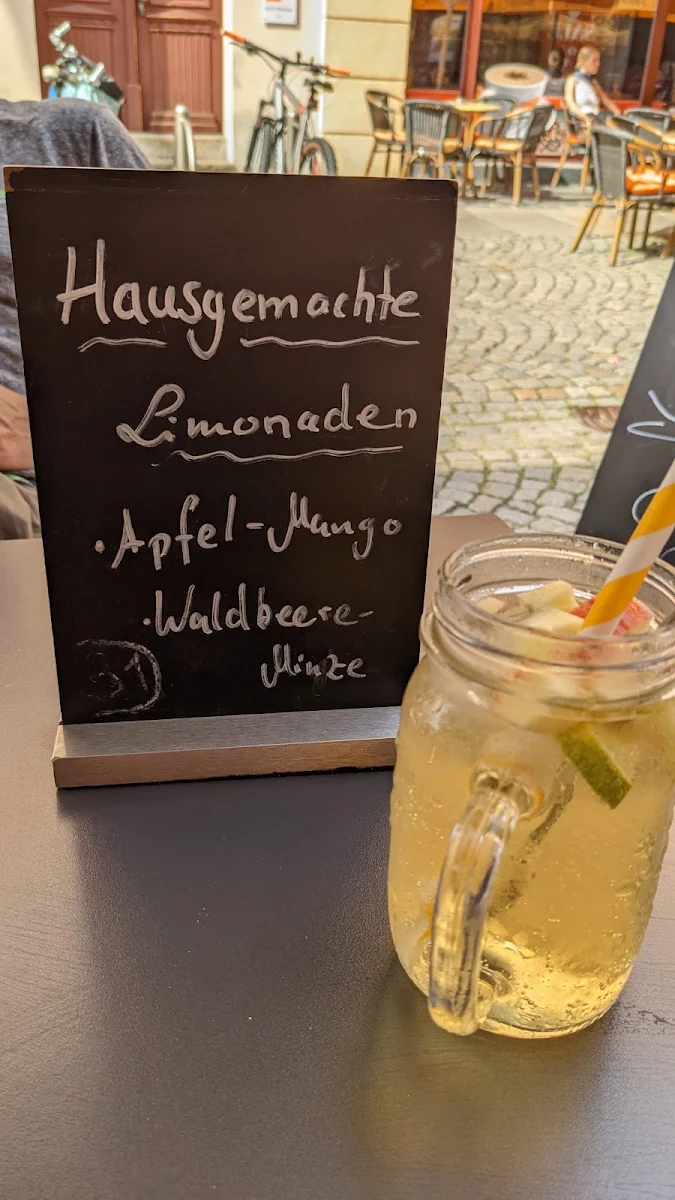 Hausgemachte
Limonaden
• Apfel-Mango
• Waldbeere-
Minze
31